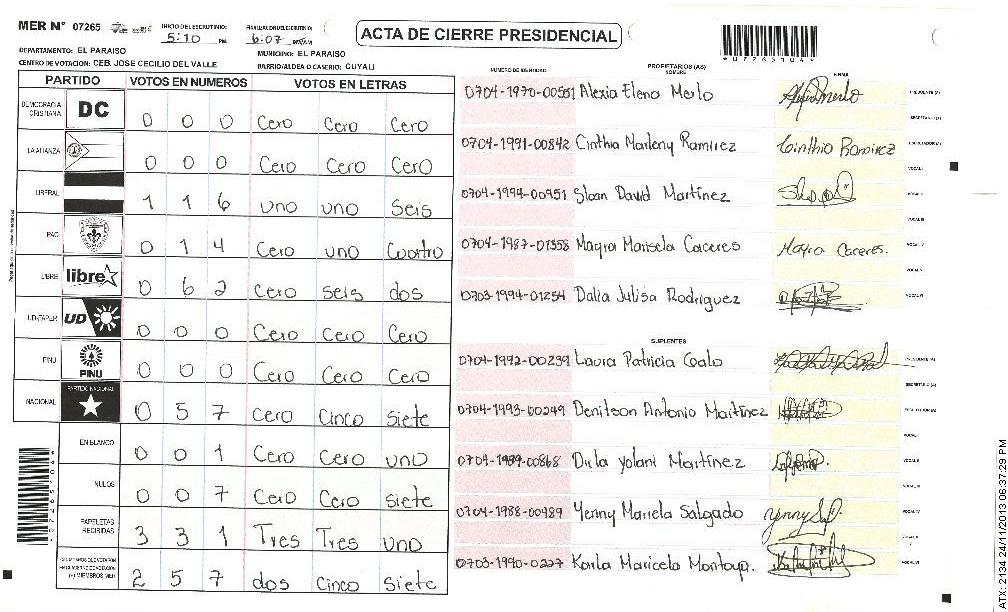 MER N° 07265
INICIO DEL ESCRUTINIO:
5:10 PM
FINALIZACION DEL ESCRUTINIO:
6:07 PM/AM
ACTA DE CIERRE PRESIDENCIAL
DEPARTAMENTO: EL PARAISO
MUNICIPIO: EL PARAISO
CENTRO DE VOTACION: CEB. JOSE CECILIO DEL VALLE
BARRIO/ALDEA O CASERIO: CUYALI
PARTIDO VOTOS EN NUMEROS VOTOS EN LETRAS
DEMOCRACIA CRISTIANA DC 0 0 0 Cero Cero Cero
LA ALIANZA 0 0 0 Cero Cero Cero
LIBERAL 1 1 6 uno uno Seis
PAC 0 1 4 Cero uno Cuatro
LIBRE libre 0 6 2 Cero Seis dos
UD-FAPER UD 0 0 0 Cero Cero Cero
PINU PINU 0 0 0 Cero Cero Cero
NACIONAL PARTIDO NACIONAL 0 5 7 Cero Cinco Siete
EN BLANCO 0 0 1 Cero Cero uno
NULOS 0 0 7 Cero Cero Siete
PAPELETAS RECIBIDAS 3 3 1 Tres Tres uno
2 5 7 dos Cinco Siete
NUMERO DE IDENTIDAD PROPIETARIOS (AS) NOMBRE FIRMA
0704-1970-00551 Alexia Elena Merlo PRESIDENTE (A)
SECRETARIO (A)
0704-1991-00842 Cinthia Marleny Ramirez Cinthia Ramirez ESCRUTADOR (A)
VOCAL I
0704-1994-00951 Sloan David Martinez VOCAL II
VOCAL III
0704-1987-01558 Mayra Marisela Caceres Mayra Caceres. VOCAL IV
VOCAL V
0703-1994-01254 Dalia Julisa Rodriguez VOCAL VI
SUPLENTES
0704-1992-00239 Laura Patricia Coalo PRESIDENTE (A)
SECRETARIO (A)
0704-1993-00249 Denilson Antonio Martinez ESCRUTADOR (A)
VOCAL I
0704-1999-00868 Dirla Yolani Martinez VOCAL II
VOCAL III
0704-1988-00989 Yenny Mariela Salgado VOCAL IV
VOCAL V
0703-1990-0227 Karla Maricela Montoya. VOCAL VI
ATX: 2134 24/11/2013 06:37:29 PM